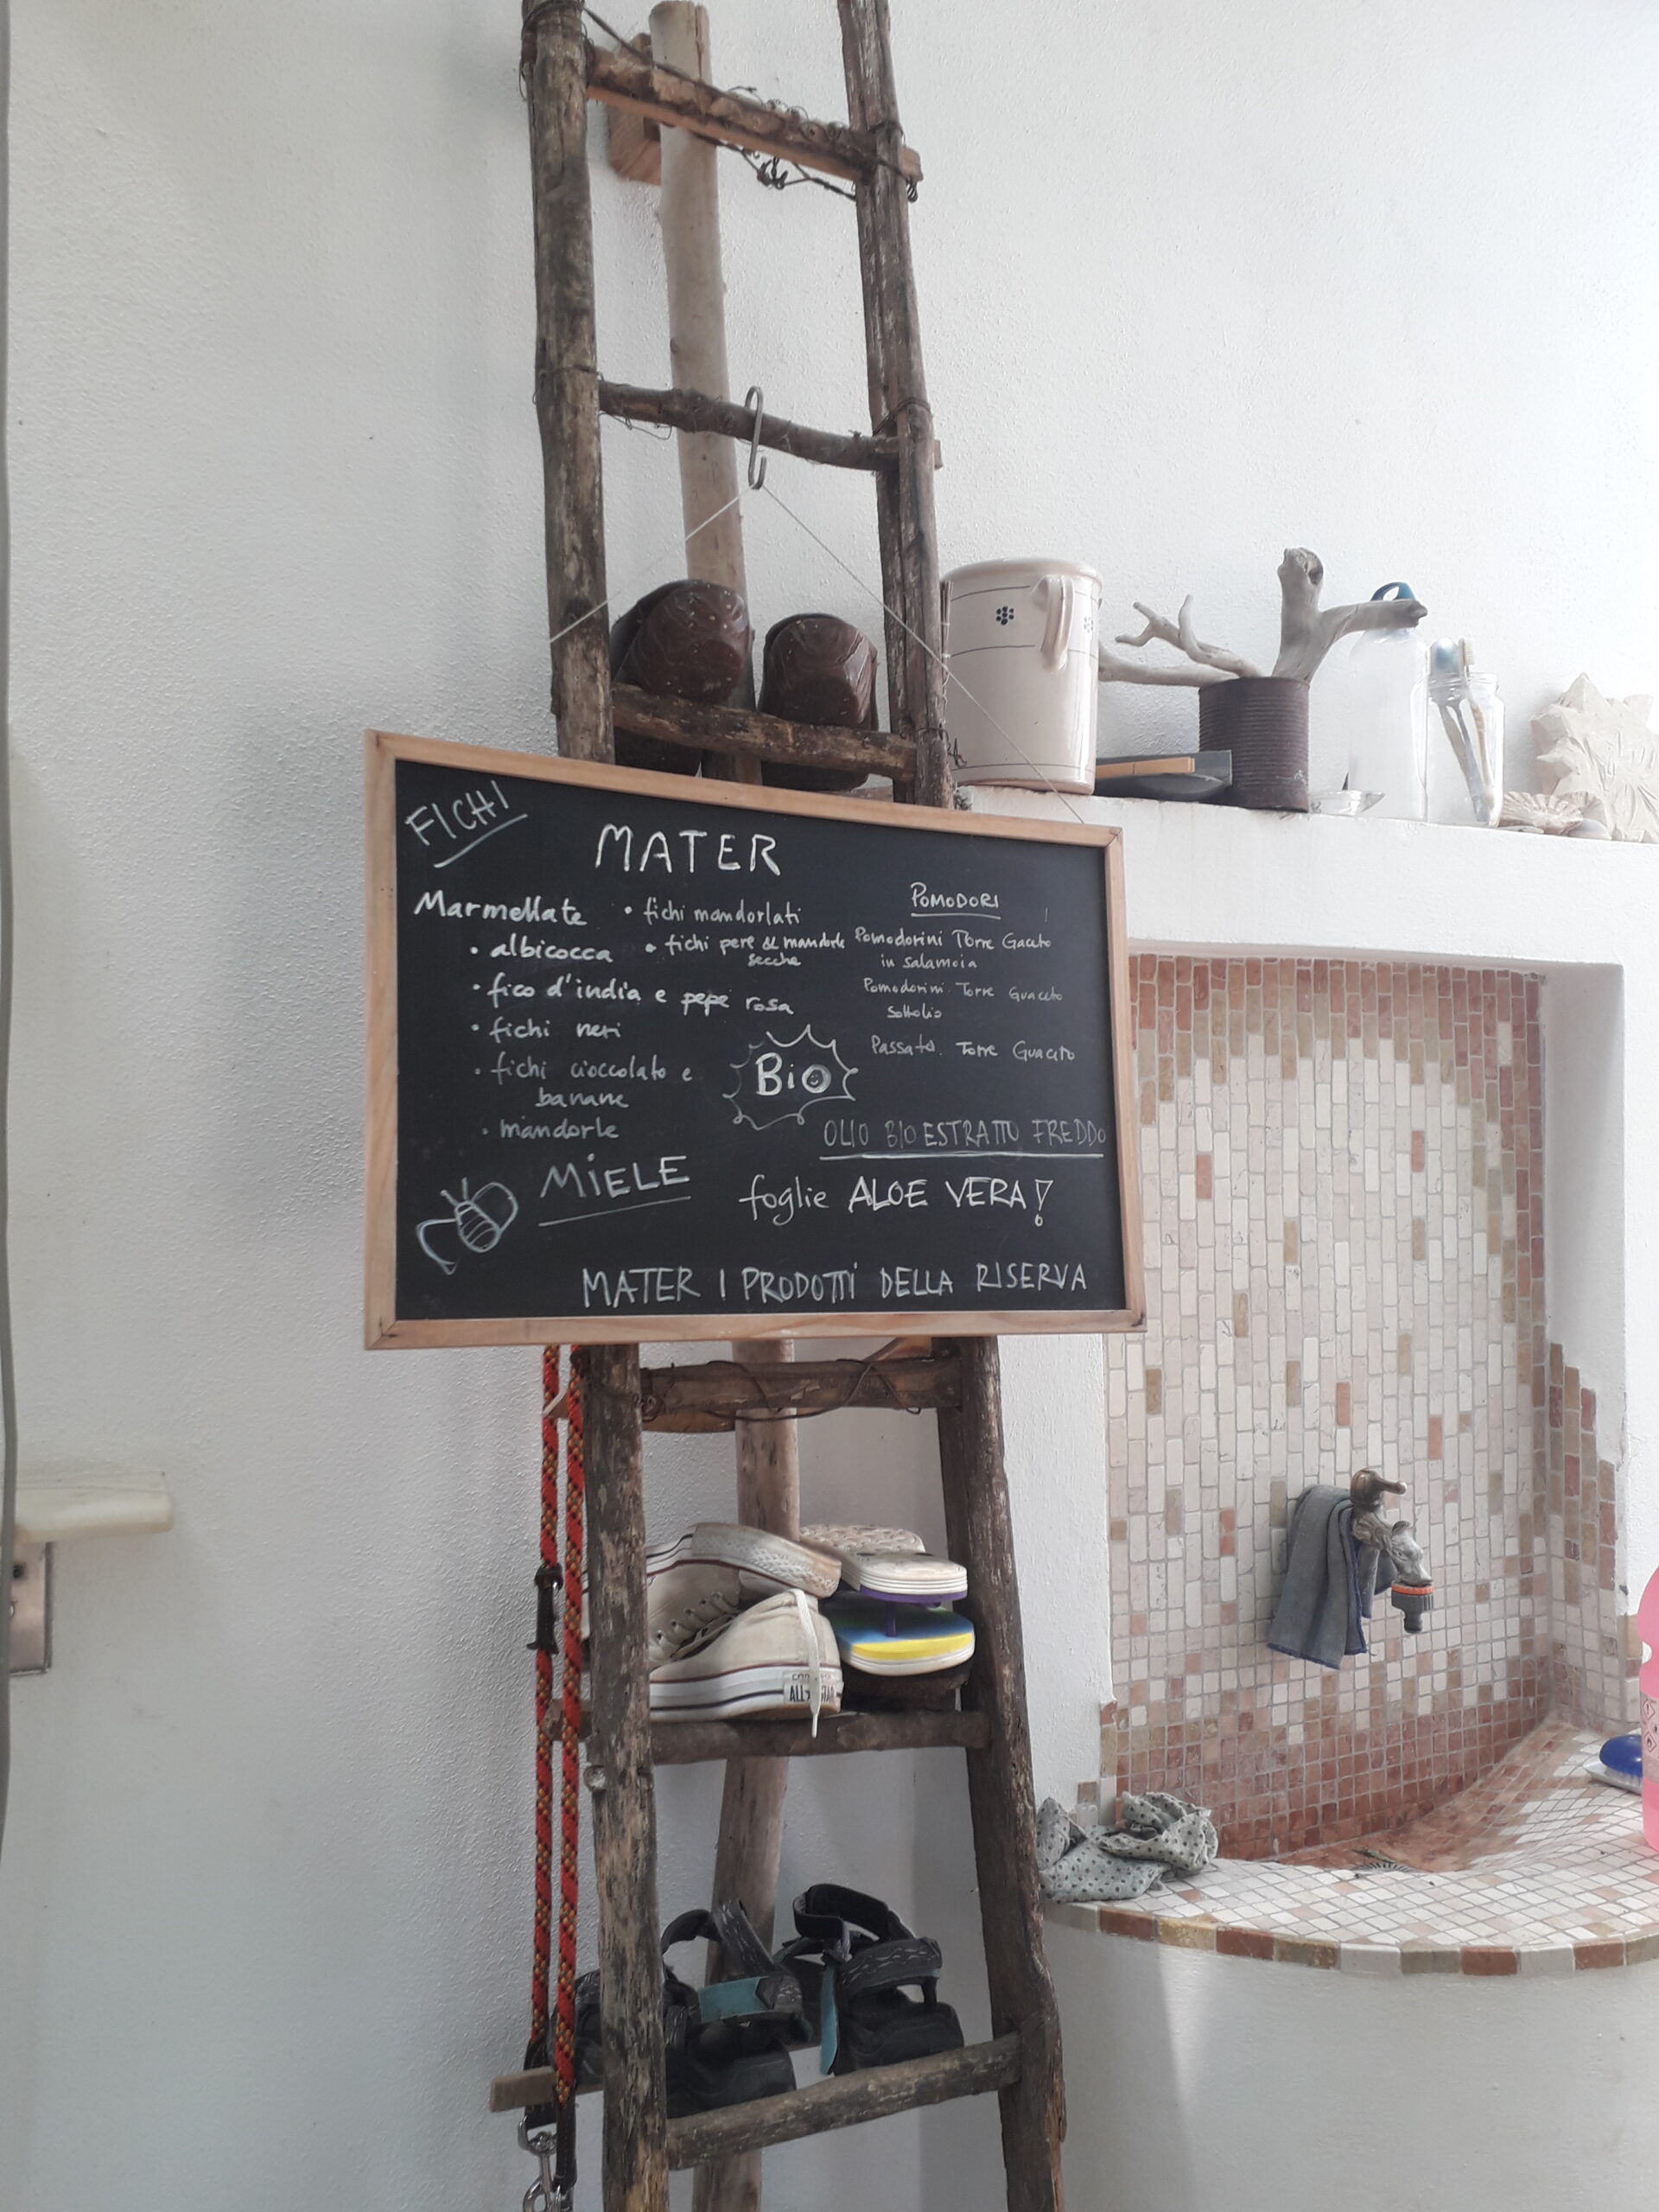 FICHI
MATER
Marmellate
• albicocca
• fico d'india e pepe rosa
• fichi neri
• fichi cioccolato e
banane
• mandorle
• fichi mandorlati
• fichi pere & mandorle
secche
POMODORI
Pomodorini Torre Gaceto
in salamoia
Pomodorini Torre Guaceto
Sottolio
Passata Torre Guaceto
Bio
OLIO BIO ESTRATTO FREDDO
MiELE
foglie ALOE VERA!
MATER I PRODOTTI DELLA RISERVA
ALL STAR